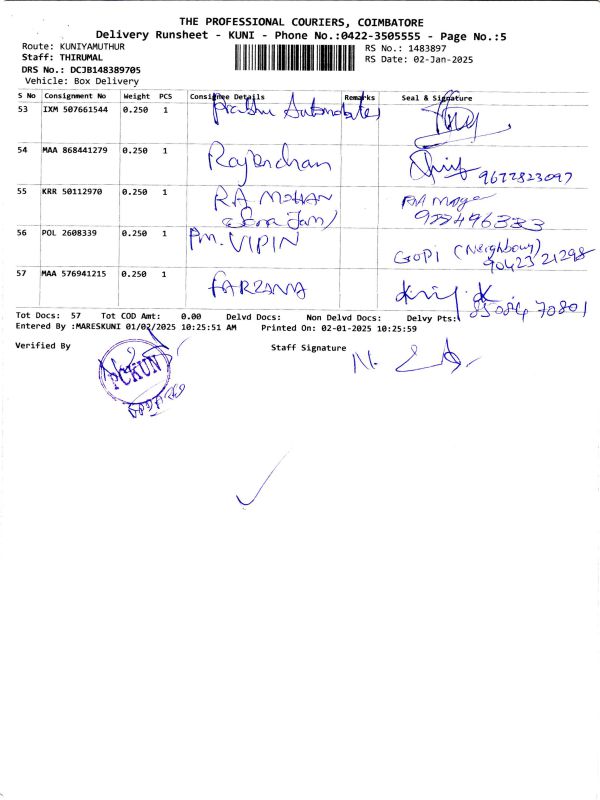 THE PROFESSIONAL COURIERS, COIMBATORE
Delivery Runsheet - KUNI - Phone No.:0422-3505555 - Page No.:5
Route: KUNIYAMUTHUR
RS No.: 1483897
Staff: THIRUMAL
RS Date: 02-Jan-2025
DRS No.: DCJB148389705
Vehicle: Box Delivery
S No Consignment No Weight PCS Consignee Details Remarks Seal & Signature
53 IXM 507661544 0.250 1 Prabhu Automobiles
54 MAA 868441279 0.250 1 Rajendran 9677823097
55 KRR 50112970 0.250 1 RA MOHAN
56 POL 2608339 0.250 1 Pm. VIPIN GOPI (Neighbour) 90423 21298
57 MAA 576941215 0.250 1 FARZANA 85084 70801
Tot Docs: 57 Tot COD Amt: 0.00 Delvd Docs: Non Delvd Docs: Delvy Pts:
Entered By :MARESKUNI 01/02/2025 10:25:51 AM Printed On: 02-01-2025 10:25:59
Verified By Staff Signature
PCKUN